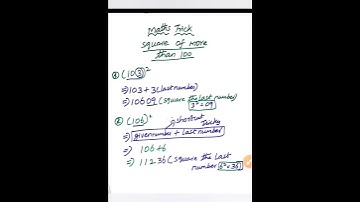 Maths Trick
square of more
than 100
① (103)²
⇒ 103 + 3 (last number)
⇒ 10609 (square the last number)
3² = 09
② (106)²
shortcut
tricks
⇒ given number + last number
⇒ 106 + 6
⇒ 11236 (square the last
number 6² = 36)